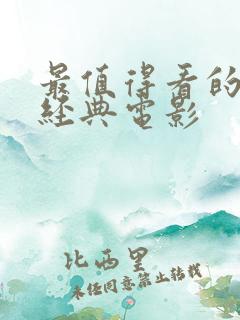 最值得看的
經典電影
比西里
未经同意禁止转载